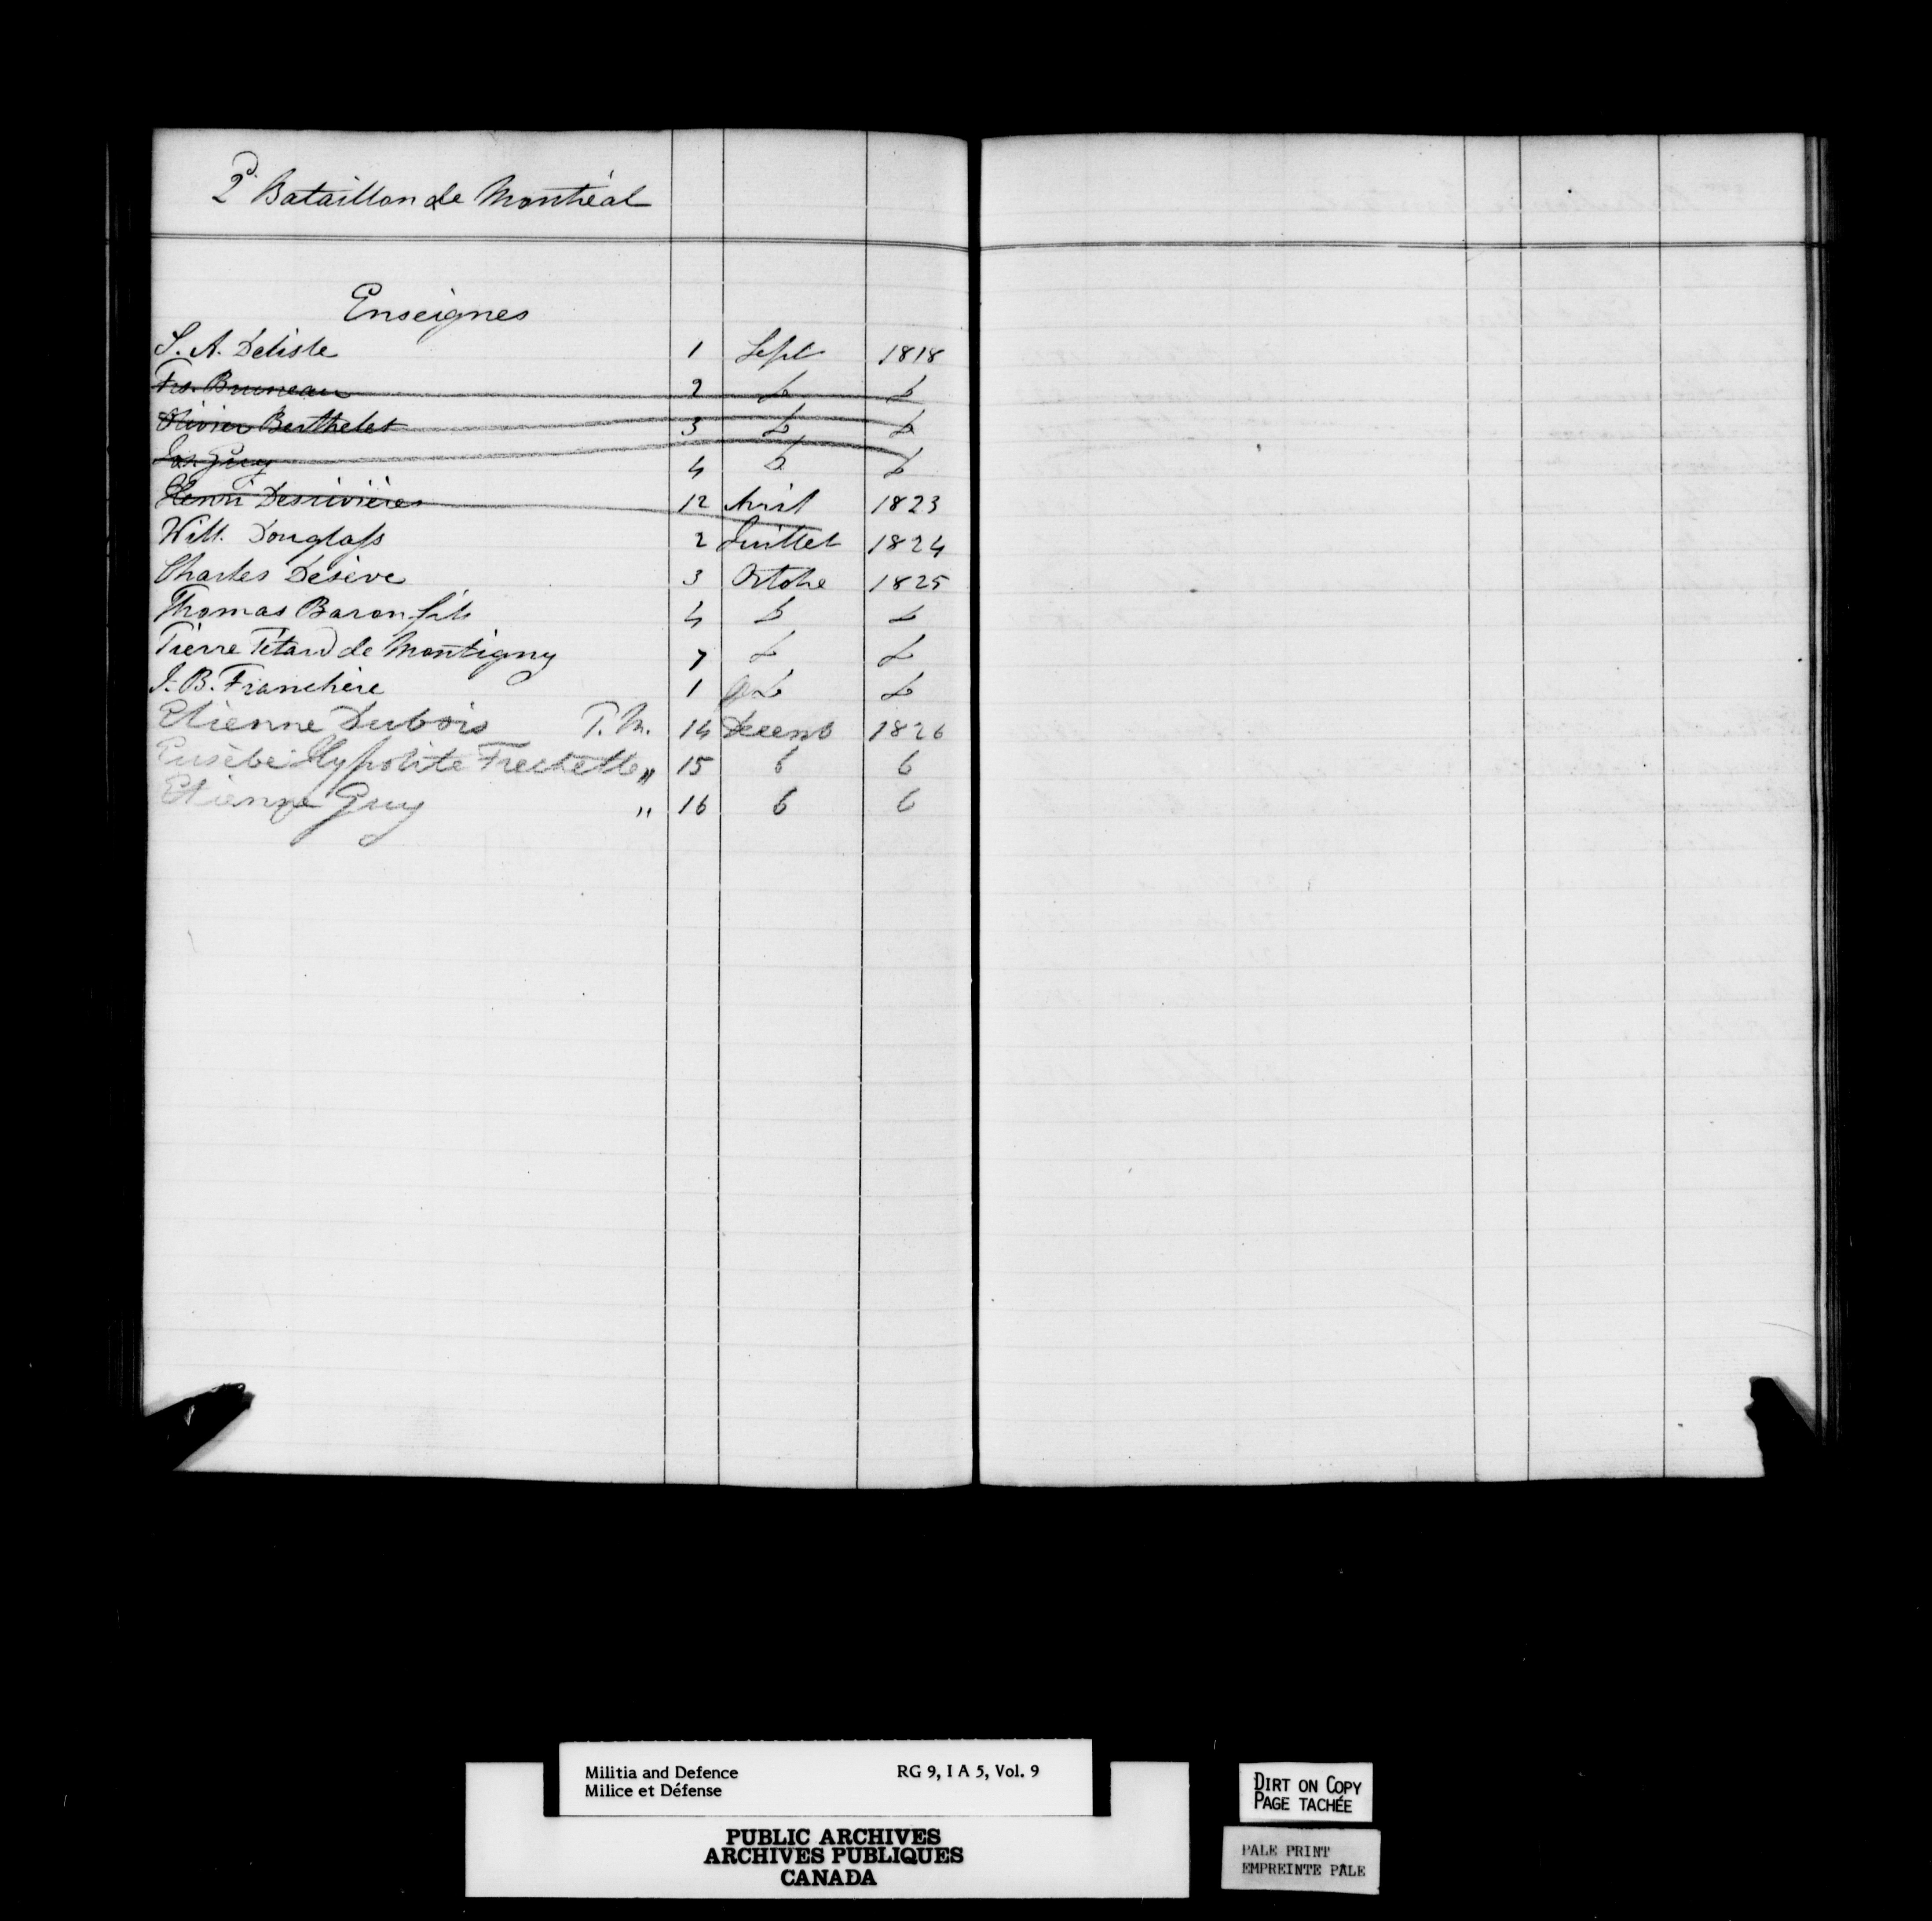 2d. Bataillon de Montréal
Enseignes
S. A. Delisle 1 Sept 1818
Frs. Bruneau 2 Do Do
Olivier Berthelet 3 Do Do
Jos. Guy 4 Do Do
Henri Desrivières 12 Avril 1823
Will. Douglass 2 Juillet 1824
Charles Desève 3 Octobre 1825
Thomas Baron fils 4 Do Do
Pierre Tétard de Montigny 7 Do Do
J. B. Franchère 1 Do
Etienne Dubois P. M. 14 Decemb 1826
Eusèbe Hypolite Frechette " 15 6 6
Etienne Guy " 16 6 6
Militia and Defence RG 9, I A 5, Vol. 9
Milice et Défense
PUBLIC ARCHIVES
ARCHIVES PUBLIQUES
CANADA
DIRT ON COPY
PAGE TACHÉE
PALE PRINT
EMPREINTE PÂLE